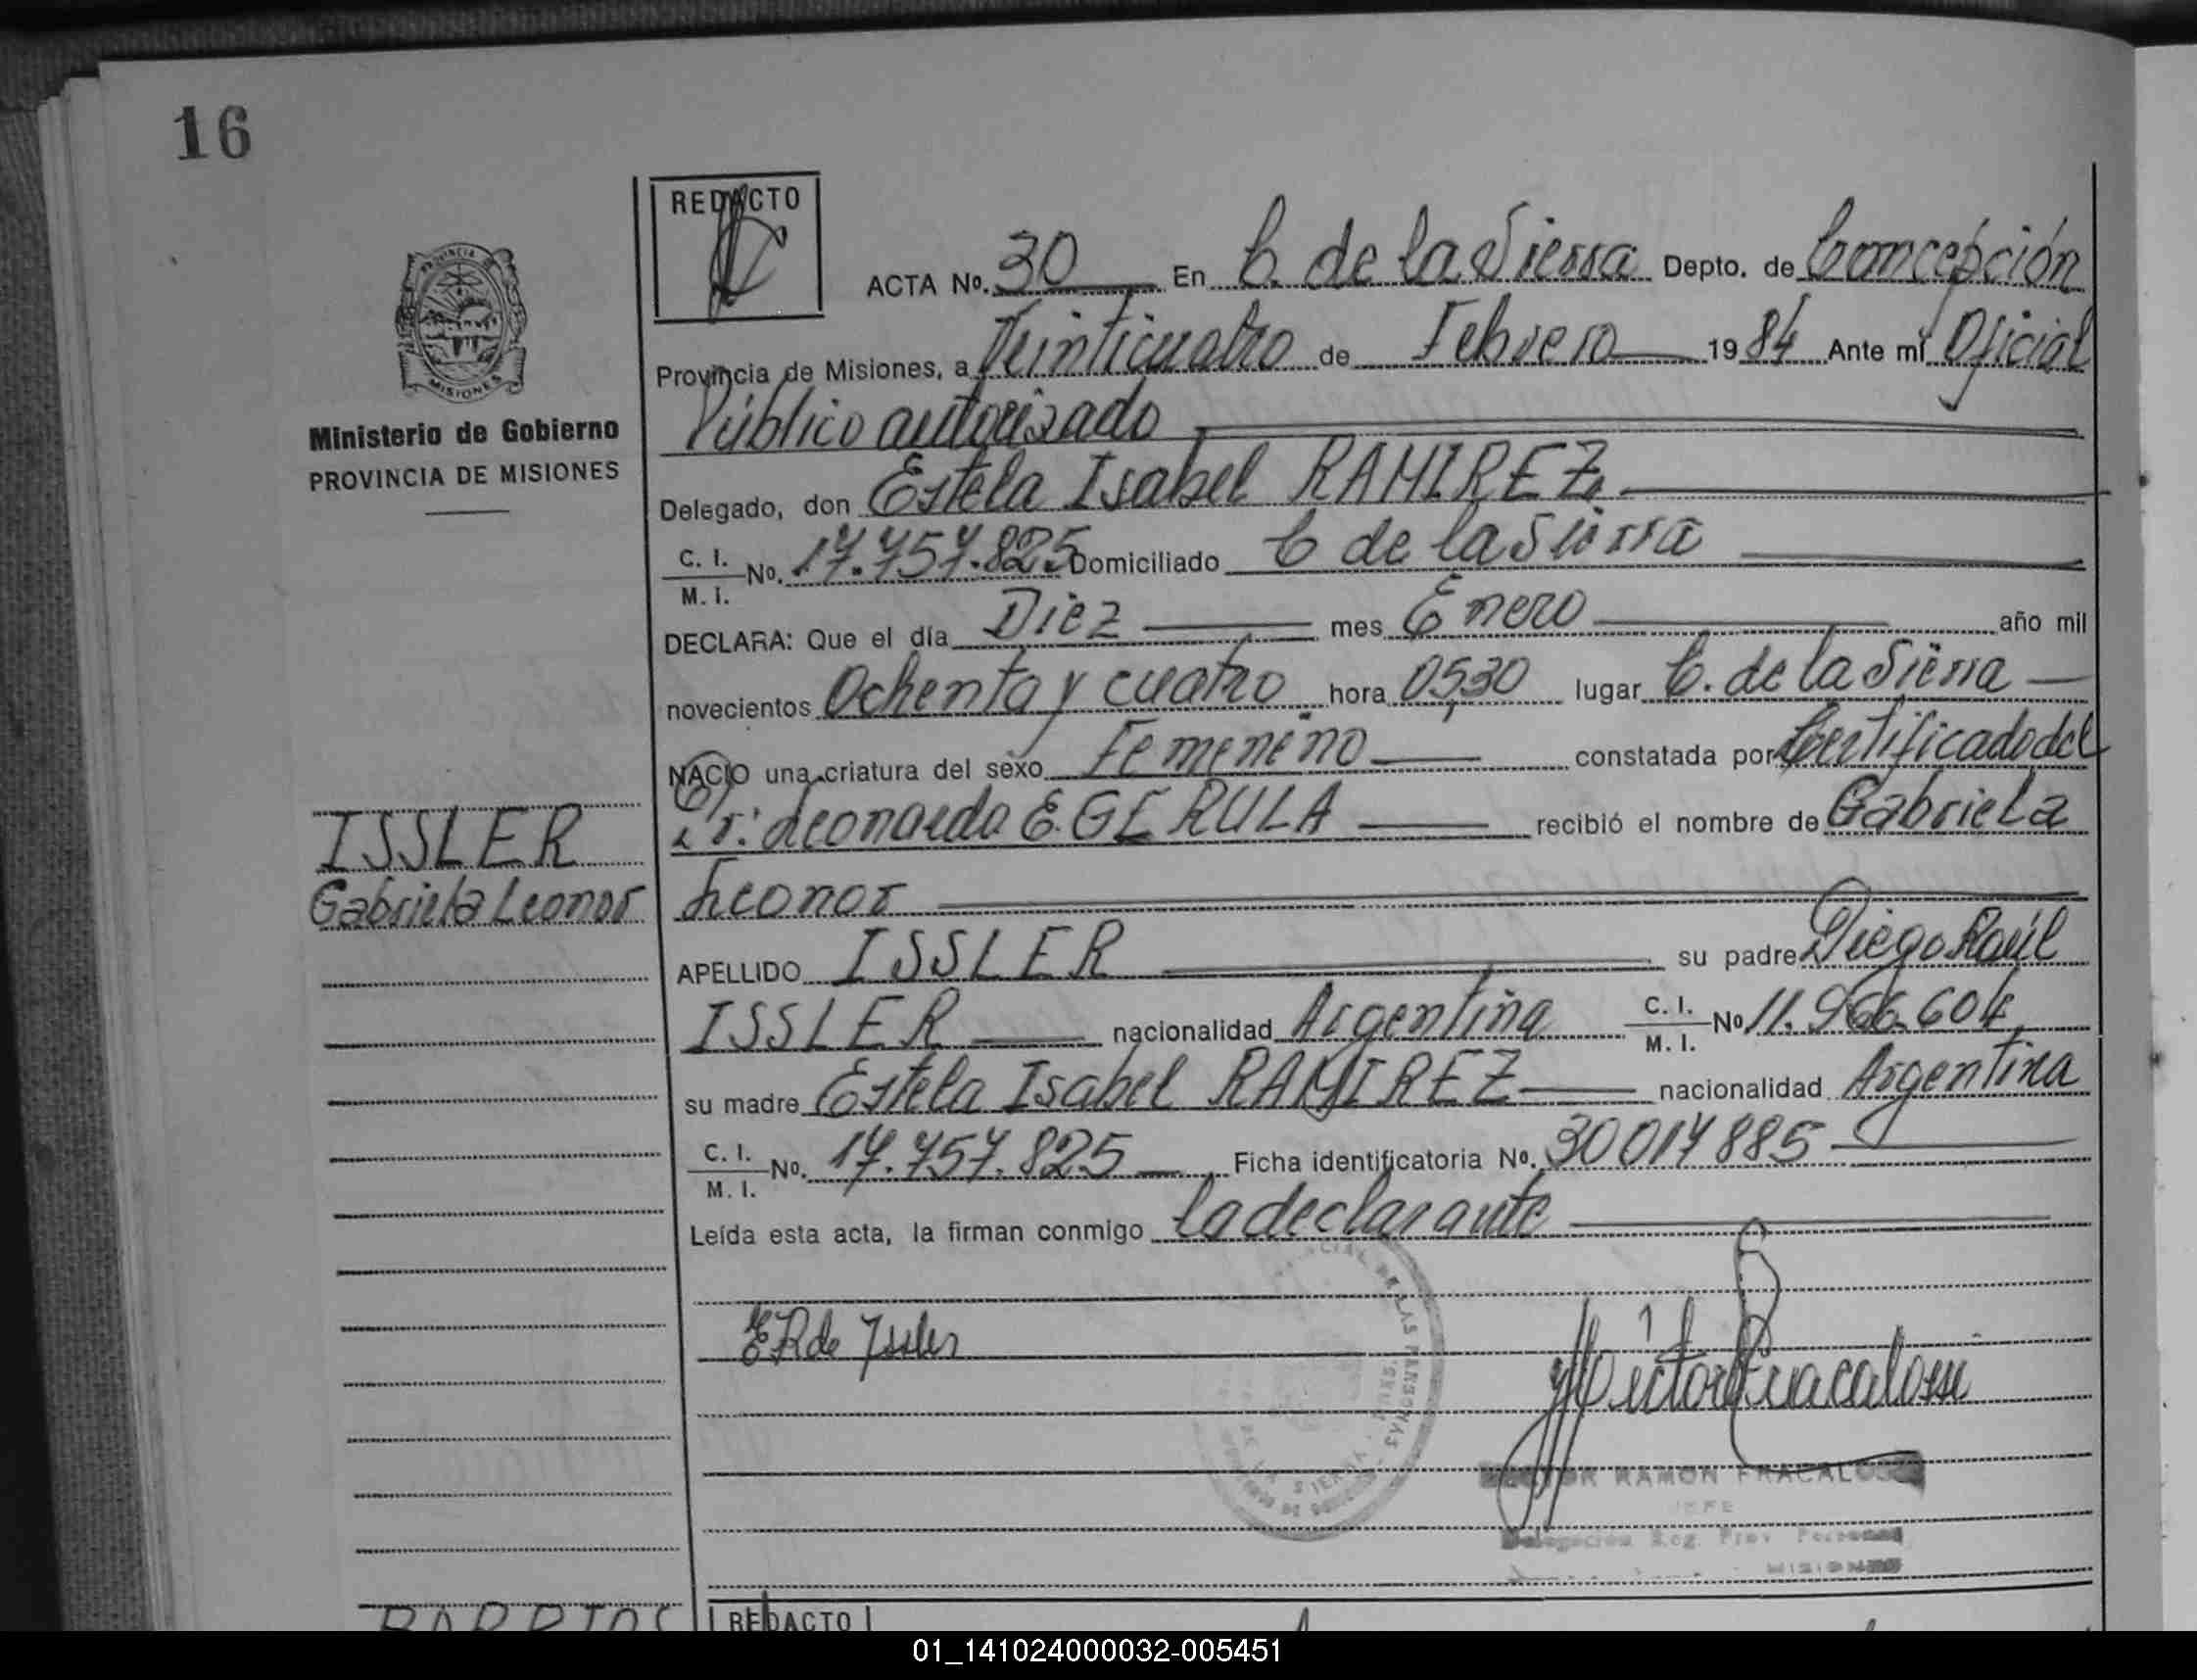 16
REDACTO
ACTA No. 30 En C. de la Sierra Depto. de Concepción
Provincia de Misiones, a Veinticuatro de Febrero 1984 Ante mí Oficial
Público autorizado
Delegado, don Estela Isabel RAMIREZ
C. I. No. 17.757.825 Domiciliado C de la Sierra
M. I.
DECLARA: Que el día Diez mes Enero año mil
novecientos Ochenta y cuatro hora 05,30 lugar C. de la Sierra
NACIO una criatura del sexo Femenino constatada por Certificado del
Dr: Leonardo E. GERULA recibió el nombre de Gabriela
Leonor
APELLIDO ISSLER su padre Diego Raúl
ISSLER nacionalidad Argentina C. I. No 11.966.604
M. I.
su madre Estela Isabel RAMIREZ nacionalidad Argentina
C. I. No. 17.757.825 Ficha identificatoria No. 30017885
M. I.
Leída esta acta, la firman conmigo la declarante
PROVINCIA DE
MISIONES
Ministerio de Gobierno
PROVINCIA DE MISIONES
ISSLER
Gabriela Leonor
E R de Issler
DE LAS PERSONAS
SIERRA
RAMON FRACALOSSI
JEFE
Delegación Reg. Prov. Personas
MISIONES
BARRIOS
REDACTO
01_141024000032-005451